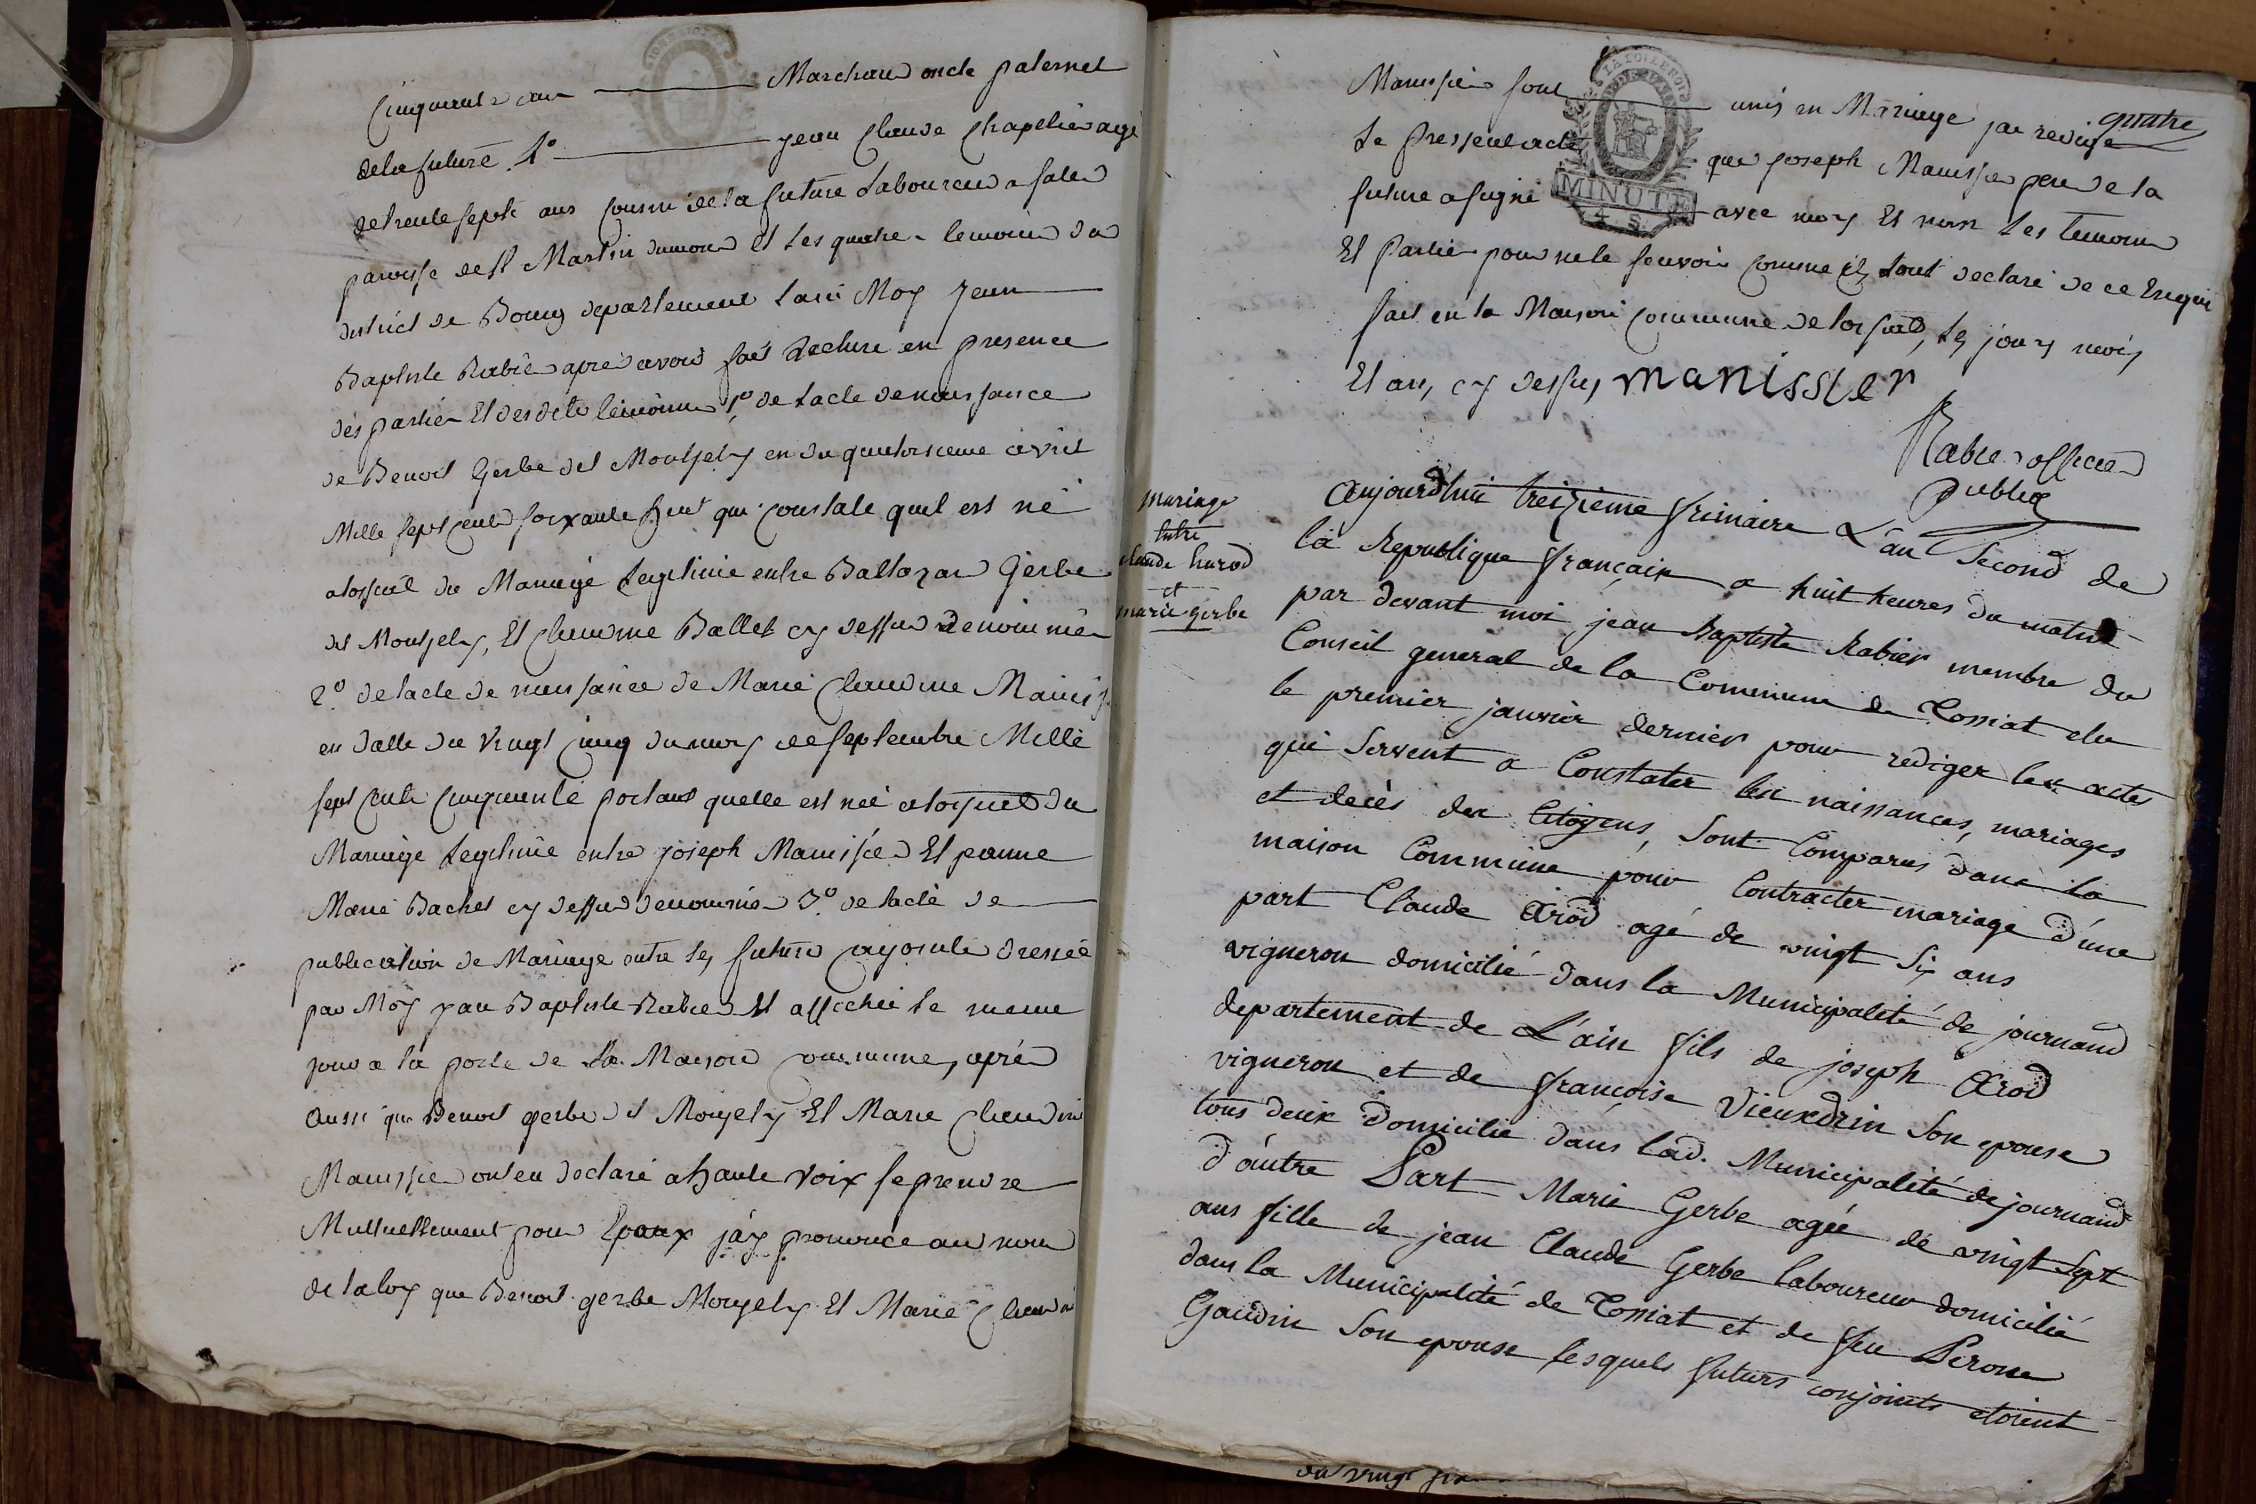 Cinquante ans Marchand oncle paternel
de la future 4º jean Claude Chapelier agé
de trente sept ans Cousin de la future Laboureur a
paroisse de st Martin dumont Et Les quatre temoins du
district de Bourg departement Lain Moy Jean
Baptiste Rabier apres avoir fait Lecture en presence
des parties Et desdits temoins 1º de Lacte de naissance
de Benoit Gerbe dit Montjely en du quatorsieme avril
Mille sept Cents soixante huit qui Constate quil est né
a tossiat du Mariage Legitime entre Baltazar Gerbe
dit Montjely, Et Claudine Ballet cy dessus denommés
2º de lacte de naissance de Marie Claudine Maniss
en datte du vingt Cinq du moy de septembre Mille
sept Cents Cinquante portant quelle est neé a tossiat du
Mariage Legitime entre joseph Manissier Et
Marie Bachet cy dessus denommés 3º de lacte de
publication de Mariage entre les futurs dressée
par Moy jean Baptiste Rabier Et affichée le meme
jour a la porte de la Maison commune, apres
aussi que Benoit gerbe dit Monjely Et Marie Claudine
Manissier ont eu declaré a haute voix se prendre
Mutuellement pour Epoux jay prononcé au nom
de la loy que Benoit gerbe Monjely Et Marie Claudin
quatre
Manissier sont unis en Mariage jai redigé
Le present acte que joseph Manissier pere de la
future a signé avec moy Et non Les temoins
Et Parties pour ne le scavoir comme ils Lont declaré de ce Enquis
fait en la Maison Commune de tossiat, les jours mois
Et an, cy dessus manissier
Rabier officier
public
LA LOI LE ROI
MINUTE
4. S.
mariage
entre
Claude harod
et
marie gerbe
Aujourdhui treizieme frimaire L'an Second de
la Republique française a huit heures du matin
par devant moi jean Baptiste Rabier membre du
Conseil general de la Commune de Tossiat elu
le premier janvier dernier pour rediger les actes
qui Servent a Constater les naissances, mariages
et decès des Citoyens, Sont Comparus dans la
maison Commune pour Contracter mariage d'une
part Claude Arod agé de vingt Six ans
vigneron domicilié dans la Municipalité de journand
departement de L'ain fils de joseph Arod
vigneron et de francoise Vieuxdrin Son epouse
tous deux Domicilié dans lad. Municipalité de journand
d'autre Part Marie Gerbe agée de vingt Sept
ans fille de jean Claude Gerbe laboureur domicilié
dans la Municipalité de Tossiat et de feu Perone
Gaudin Son epouse lesquels futurs conjoints etoient
du vingt six